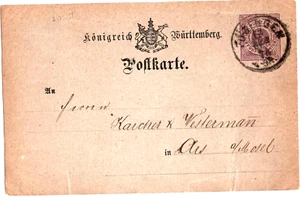 Königreich Württemberg.
Postkarte.
An
Herren
Karcher & Westerman
in Ars a/Mosel